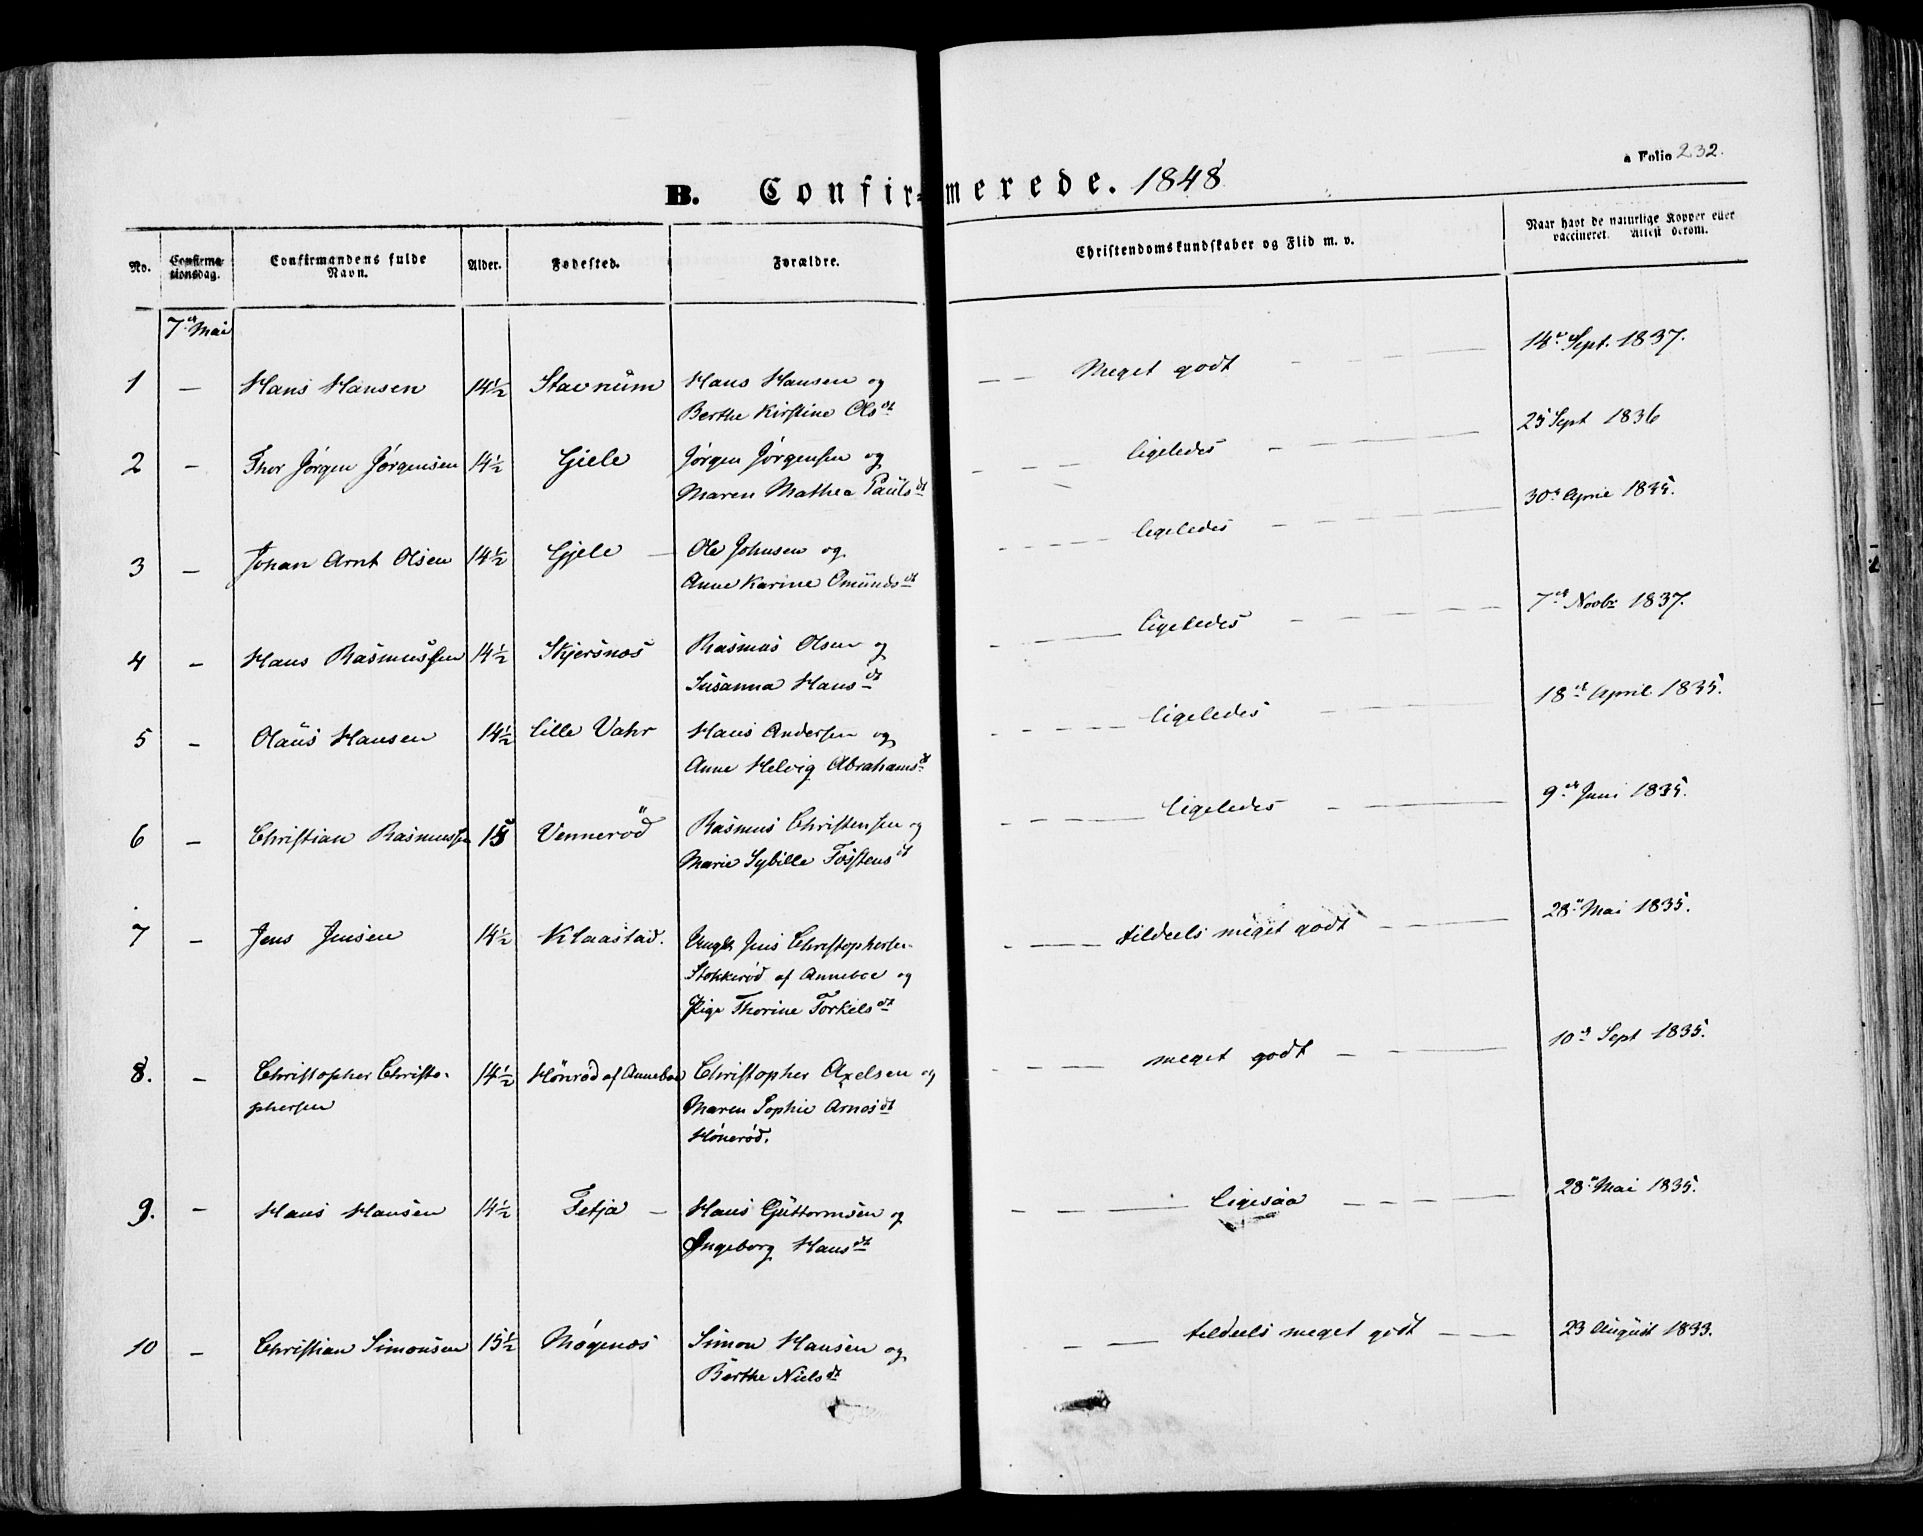 a Folio 232.
B. Confirmerede. 1848
No. Confirmationsdag. Confirmandens fulde Navn. Alder. Fødested. Forældre. Christendomskundskaber og Flid m. v. Naar havt de naturlige Kopper eller vaccineret. Attest derom.
7de Mai
1 – Hans Hansen 14½ Stavnum Hans Hansen og – – Meget godt – 14de Sept. 1837.
Berthe Kirstine Olsdt
2 – Thor Jørgen Jørgensen 14½ Gjele Jørgen Jørgensen og – – – ligeledes – 25 Sept 1836
Maren Mathea Paulsdt
3 – Johan Arnt Olsen 14½ Gjele – Ole Johnsen og – – – ligeledes – 30te April 1835.
Anne Karine Omundsdt
4 – Hans Rasmussen 14½ Skjersnæs Rasmus Olsen og – – – ligeledes – 7de Novbr 1837.
Susanna Hansdt
5 – Olaus Hansen 14½ Lille Vahr Hans Andersen og – – – ligeledes – 18de April 1835.
Anne Helvig Abrahamsdt
6 – Christian Rasmussen 15 Vennerød Rasmus Christensen og – – – ligeledes – 9de Juni 1835.
Marie Sybille Tostensdt
7 – Jens Jensen 14½ Klaastad. Ungk Jens Christophersen – – – tildeels meget godt – – – 28de Mai 1835.
Stokkerød af Anneboe og
Pige Thorine Torkelsdt
8. – Christopher Christo- 14½ Hönrød af Anneboe Christopher Axelsen og – – – meget godt – – – 10de Sept 1835.
phersen Maren Sophie Arnosdt
Hönerød.
9. – Hans Hansen 14½ Tetja – Hans Guttormsen og – – – Ligesaa – – – 28de Mai 1835.
Ingeborg Hansdt
10 – Christian Simonsen 15½ Møgenæs Simon Hansen og – – tildeels meget godt – – – 23 August 1833.
Berthe Nielsdt